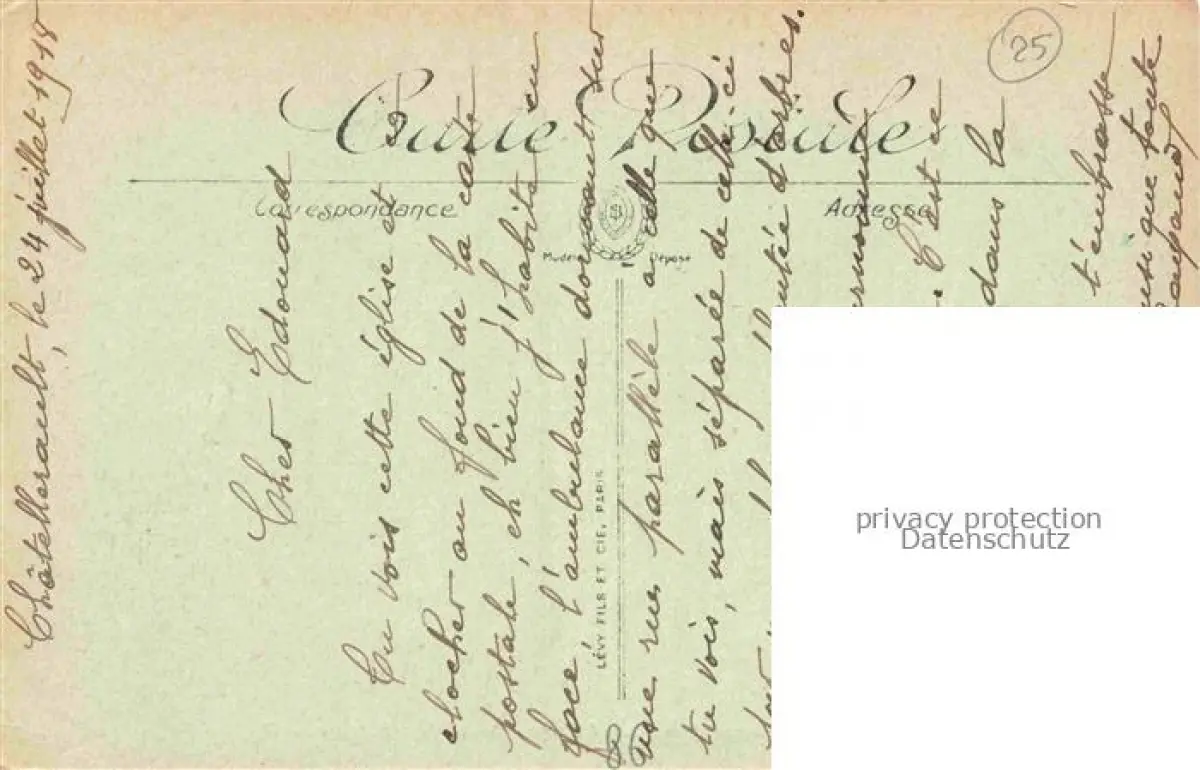 Carte Postale
Correspondance
Adresse
Modèle Déposé
LÉVY FILS ET CIE, PARIS
25
Châtellerault, le 24 juillet 1918
Cher Edouard
Tu vois cette église et
clocher au fond de la carte
postale, eh bien j'habite en
face, l'ambulance donnant sur
une rue parallèle à celle que
tu vois, mais séparée de celle-ci
d'arbres.
C'est ce
dans la
t'embrasse
ainsi que toute
privacy protection
Datenschutz